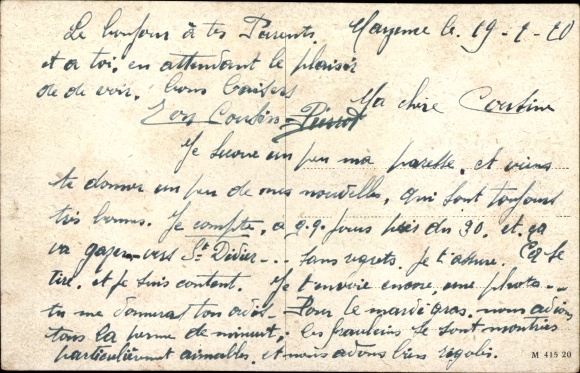 Mayence le. 19-2-20
Ma chère Cousine
Je secoue un peu ma paresse, et viens
te donner un peu de mes nouvelles, qui sont toujours
très bonnes. Je compte, a q.q. jours près du 30, et ça
va gazer vers St Didier--- sans regrets, je t'assure. Ça se
tire, et je suis content. Je t'envoie encore une photo--
tu me donneras ton avis- Pour le mardi gras, nous avions
tous la perme de minuit; les frauleins se sont montrées
particulièrement aimables, et nous avons bien rigolés.
Le bonjour à tes Parents,
et a toi, en attendant le plaisir
de de voir, bons baisers
Ton Cousin Pierrot
M 415 20